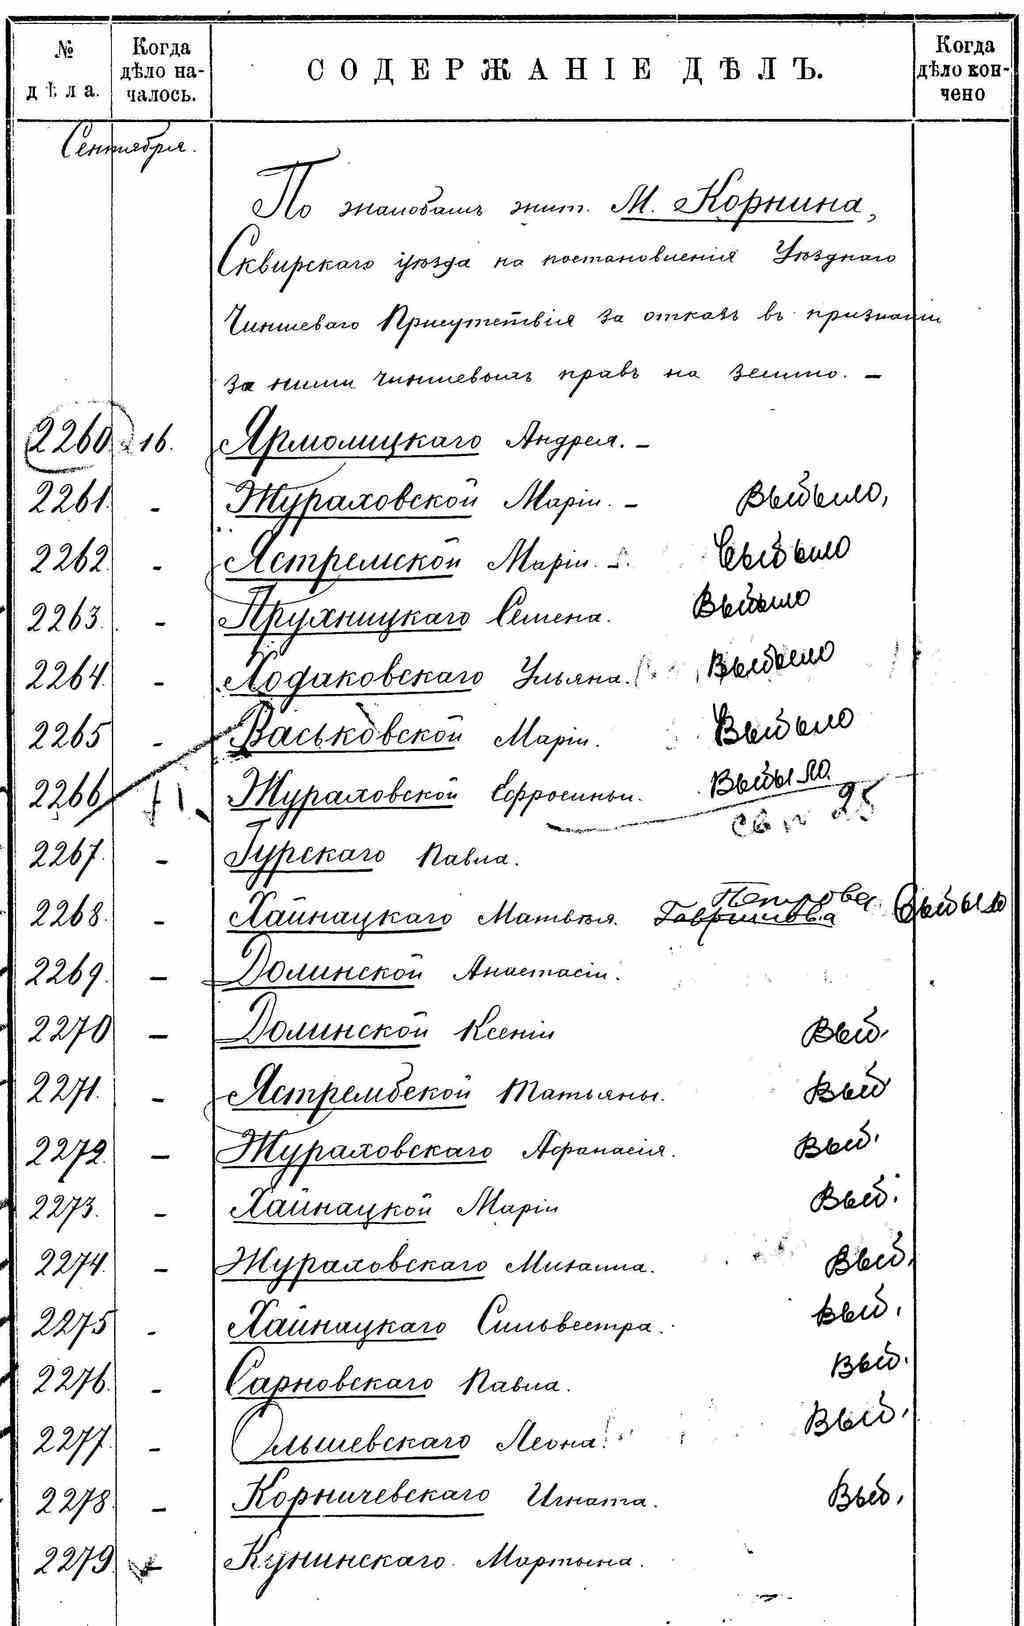 № дѣла.
Когда дѣло на-
чалось.
СОДЕРЖАНІЕ ДѢЛЪ.
Когда дѣло кон-
чено
Сентября.
По жалобамъ жит. М. Корнина,
Сквирскаго уѣзда на постановленія Уѣзднаго
Чиншеваго Присутствія за отказъ въ признаніи
за ними чиншевыхъ правъ на землю. –
2260 16. Ярмолицкаго Андрея. –
2261. - Жураховской Маріи. – Выбыло,
2262. - Ястремской Маріи. – Выбыло
2263. - Прухницкаго Семена. Выбыло
2264. - Ходаковскаго Ульяна. Выбыло
2265 - Васьковской Маріи. Выбыло
2266 Жураховской Ефросиньи. Выбыло.
25
2267. - Гурскаго Павла.
2268. - Хайнацкаго Матвѣя. Гаврилова Петрова Выбыло
2269. - Долинской Анастасіи.
2270 - Долинской Ксеніи Выб.
2271. - Ястрембской Татьяны. Выб
2272. - Жураховскаго Афанасія. Выб.
2273. - Хайнацкой Маріи Выб.
2274. - Жураховскаго Михаила. Выб.
2275 - Хайнацкаго Сильвестра. Выб.
2276. - Сарновскаго Павла. Выб.
2277. - Ольшевскаго Леона. Выб.
2278. - Корничевскаго Игната. Выб.
2279 - Кунинскаго Мартына.